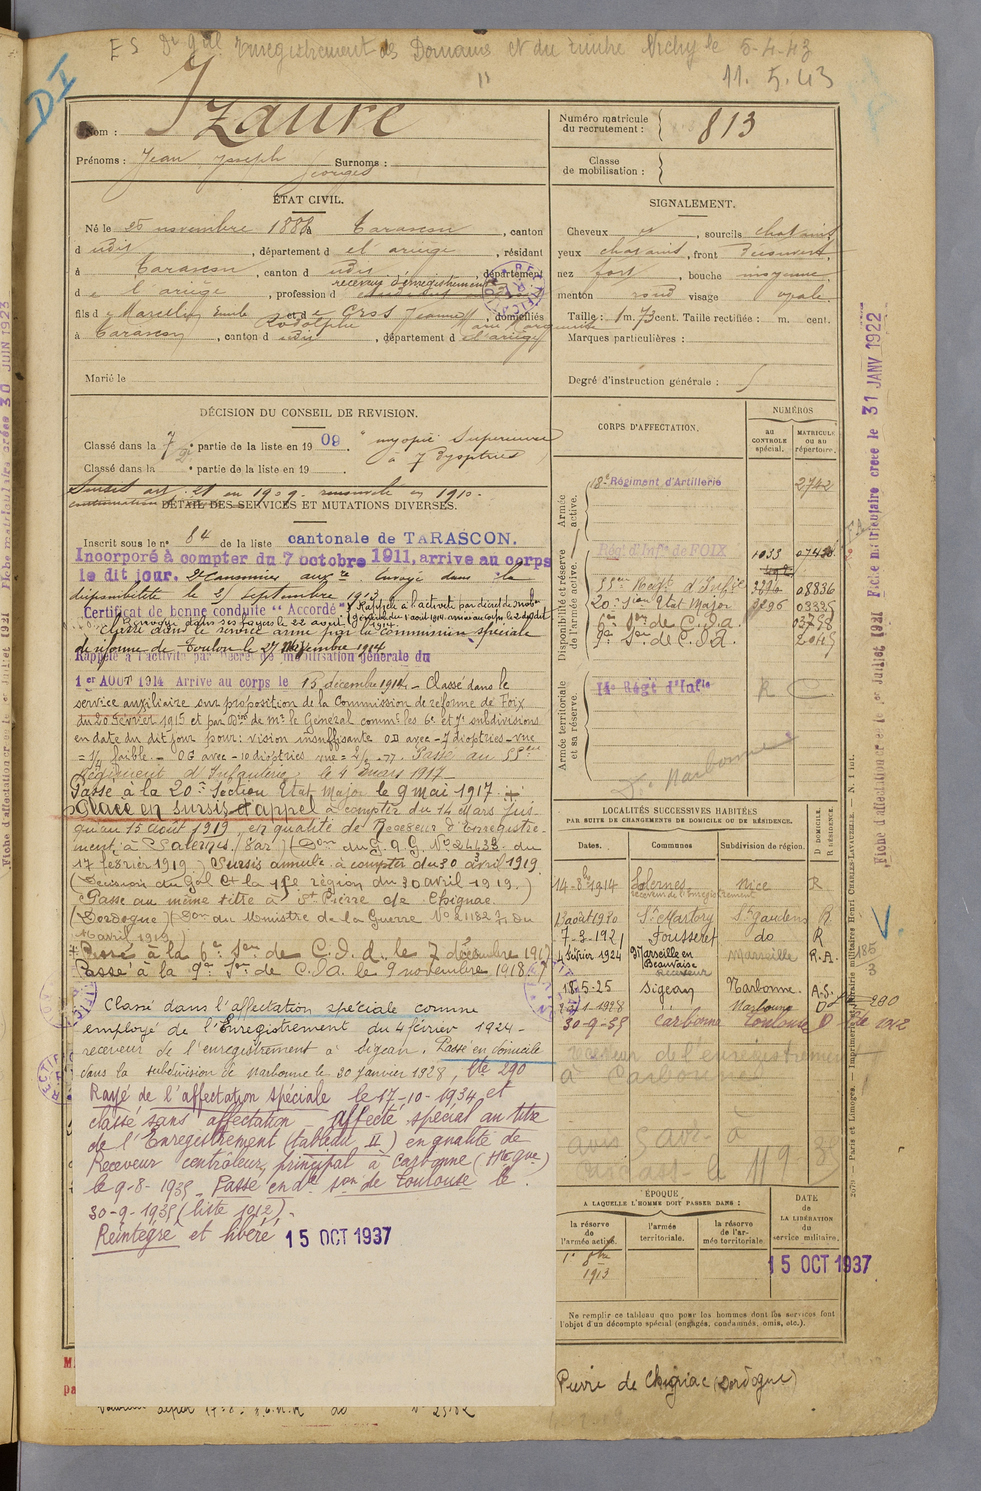 ES Dr Gal Enregistrement des Domaines et du timbre Vichy le 5-4-43
11.5.43
DI
Nom : Izaure
Prénoms : Jean Joseph Georges Surnoms :
ÉTAT CIVIL.
Né le 25 novembre 188 à Tarascon, canton
d udit, département d el ariège, résidant
à Tarascon, canton d udit, département
d e l'ariège, profession d receveur d'enregistrement
fils d e Marcelin Emile Rodolphe et d e Gros Jeanne Marie Marguerite, domiciliés
à Tarascon, canton d udit, département d el'ariège
Marié le
DÉCISION DU CONSEIL DE REVISION.
Classé dans la 7e partie de la liste en 1909. "myopie Supérieure
Classé dans la e partie de la liste en 19 . à 7 Dyoptries
Sursis art. 21 en 1909. renouvelé en 1910.
DÉTAIL DES SERVICES ET MUTATIONS DIVERSES.
Inscrit sous le n° 84 de la liste cantonale de TARASCON.
Incorporé à compter du 7 octobre 1911, arrive au corps
le dit jour. 2e Canonnier aux re Envoyé dans la
disponibilité le 25 septembre 1913
Certificat de bonne conduite "Accordé" Rappelé à l'activité par décret de mobon
Générale du 1 août 1914. arrivé au Corps le 2 août
Renvoyé dans ses foyers le 22 août 1914.
Classé dans le service armé par la commission spéciale
de réforme de Toulon le 27 novembre 1914
Rappelé à l'activité par Décret de mobilisation générale du
1er AOUT 1914 Arrivé au corps le 15 décembre 1914. - Classé dans le
service auxiliaire sur proposition de la Commission de réforme de Foix
du 20 Février 1915 et par Don de Mr le Général commt les 6e et 7e subdivisions
en date du dit jour pour: vision insuffisante OD avec -7 dioptries - vue
= 1/4 faible. - OG avec -10 dioptries vue = Passé au 55ème
Régiment d'Infanterie le 4 mars 1917
Passé à la 20e Section Etat Major le 9 mai 1917. +
Placé en sursis d'appel à compter du 14 Mars jus
qu'au 15 août 1919, en qualité de Receveur d'Enregistre-
ment à Salernes (Var) (Don du G.Q.G. No 26433 du
17 février 1919) Sursis annulé à compter du 30 avril 1919
(Décision du Gal Ct la 15e région du 30 avril 1919.)
Passé au même titre à St Pierre de Chignac.
(Dordogne) (Don du Ministre de la Guerre No 21182 7/1 du
avril 1919)
+ Passé à la 6e Son de C.O.A. le 7 décembre 1917
Passé à la 9e Son de C.O.A. le 9 novembre 1918
Classé dans l'affectation spéciale comme
employé de l'Enregistrement du 4 février 1924 -
receveur de l'enregistrement à Sigean. Passé en domicile
dans la subdivision de Narbonne le 30 Janvier 1928, lte 290
Rayé de l'affectation spéciale le 17-10-1934 et
classé sans affectation affecté spécial au titre
de l'Enregistrement (tableau II) en qualité de
Receveur contrôleur principal à Carbonne (Hte Gne)
le 9-8-1935 - Passé en don son de Toulouse le
30-9-1935 (liste 1912) -
Réintégré et libéré 15 OCT 1937
Numéro matricule du recrutement : 813
Classe de mobilisation :
SIGNALEMENT.
Cheveux et, sourcils chatains
yeux chatains, front Découvert
nez fort, bouche moyenne
menton rond visage ovale
Taille : 1 m. 73 cent. Taille rectifiée : m. cent.
Marques particulières :
Degré d'instruction générale : 5
CORPS D'AFFECTATION.
NUMÉROS
au CONTROLE spécial.
MATRICULE OU AU répertoire.
Armée active.
18e Régiment d'Artillerie 2742
Disponibilité et réserve de l'armée active.
Régt d'Infie de FOIX 1033
55ème Regt d'Infie 08836
20e Son Etat Major 3296 03325
6e Son de C.O.A. 03758
9e Son de C.O.A.
Armée territoriale et sa réserve.
14e Régt d'Infie
Narbonne
LOCALITÉS SUCCESSIVES HABITÉES
PAR SUITE DE CHANGEMENTS DE DOMICILE OU DE RÉSIDENCE.
Dates. Communes Subdivision de région. D DOMICILE. R RÉSIDENCE.
14-8bre 1914 Salernes Nice R
receveur de l'enregistrement
13 août 1920 St Martory St Gaudens R
7-3-1921 Fousseret do R
4 février 1924 Marseille en Beauvaisis Marseille R.A.
receveur
18-5-25 Sigean Narbonne. A.S.
1-1928 Narbonne D 290
30-9-35 Carbonne Toulouse D lte 1912
receveur de l'enregistrement
à Carbonne
ÉPOQUE
A LAQUELLE L'HOMME DOIT PASSER DANS :
la réserve de l'armée active.
l'armée territoriale.
la réserve de l'armée territoriale
DATE de LA LIBÉRATION du service militaire.
1er 8bre 1913
15 OCT 1937
Ne remplir ce tableau que pour les hommes dont les services font
l'objet d'un décompte spécial (engagés, condamnés, omis, etc.).
Pierre de Chignac (Dordogne)
Fiche matriculaire créée le 31 JANV 1922
Fiche d'affectation créée le 1er Juillet 1921
Paris et Limoges. — Imprimerie et librairie militaires Henri CHARLES-LAVAUZELLE.
30 JUIN 1923